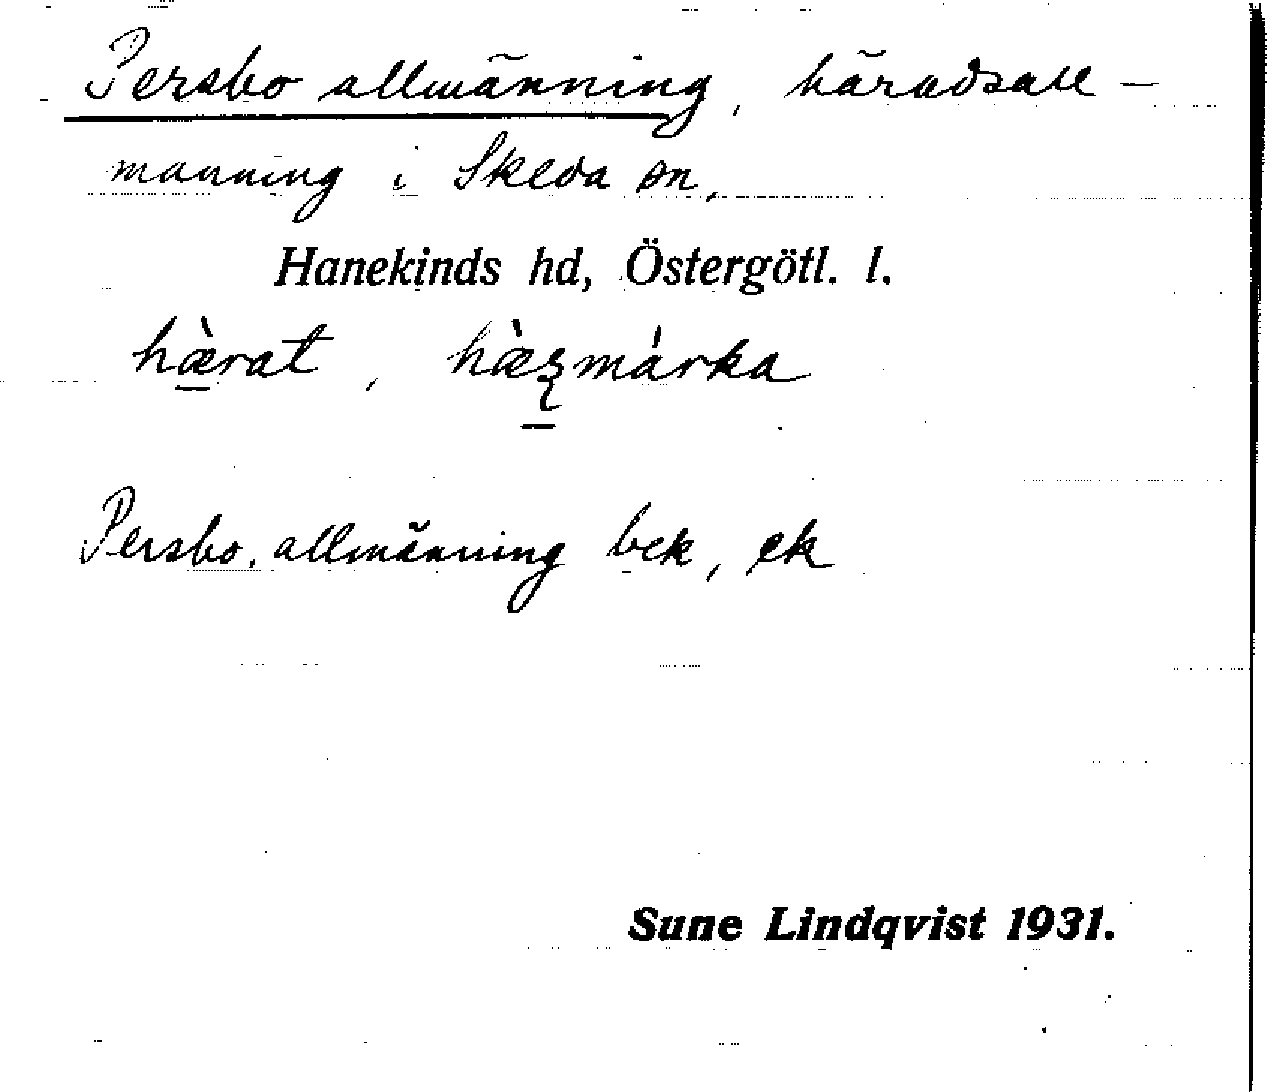 Persbo allmänning, häradsall-
männing i Skeda sn,
Hanekinds hd, Östergötl. l.
hæ̀rat,
Persbo allmänning bek, ek
Sune Lindqvist 1931.